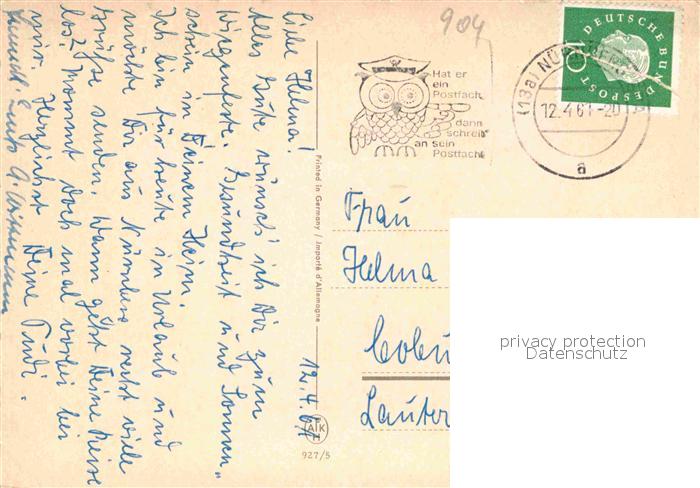 Liebe Helma!
Alles Gute wünsch' ich Dir zum
Wiegenfeste. Gesundheit und Sonnen-
schein in Deinem Heim.
Ich bin für heute in Urlaub und
möchte Dir aus Nürnberg recht viele
Grüße senden. Wann geht Deine Reise
los? Kommst doch mal vorbei bei
mir. Herzlichst Deine Trudi.
12.4.61
Printed in Germany / Importé d'Allemagne
AK
927/5
904
Hat er
ein
Postfach,
dann
schreib
an sein
Postfach!
(13a) NÜ
12.4.61-20
a
DEUTSCHE BUNDESPOST
10
Frau
Helma
Cobu
Lauter
privacy protection
Datenschutz